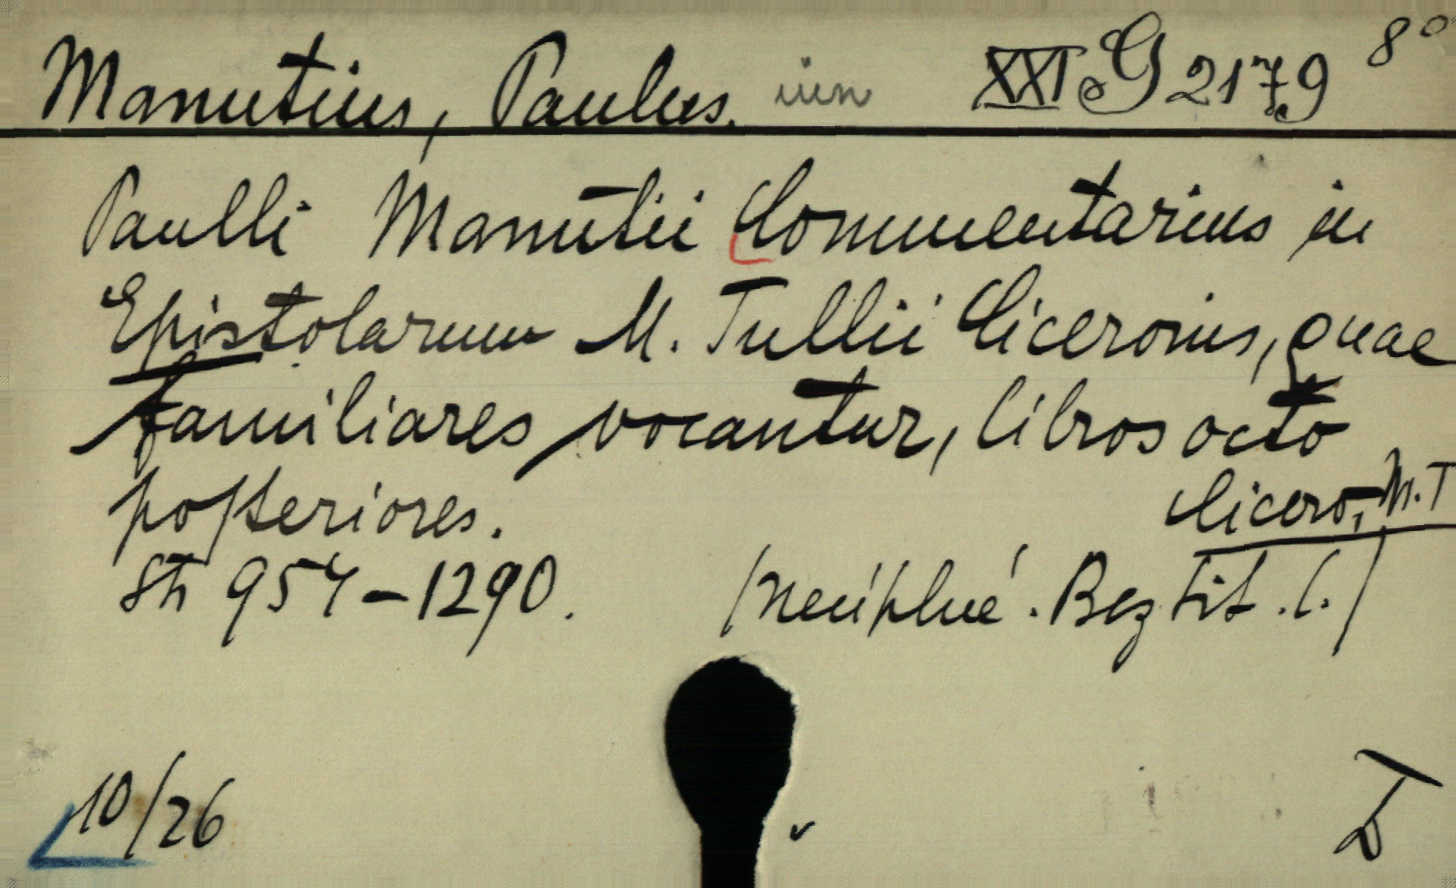 Manutius, Paulus. iun XXI G 2179 8°
Paulli Manutii Commentarius in
Epistolarum M. Tullii Ciceronis, quae
familiares vocantur, libros octo
posteriores.
Cicero, M.T
Str 954-1290. /Neúplné. Bez tit. l./
10/26